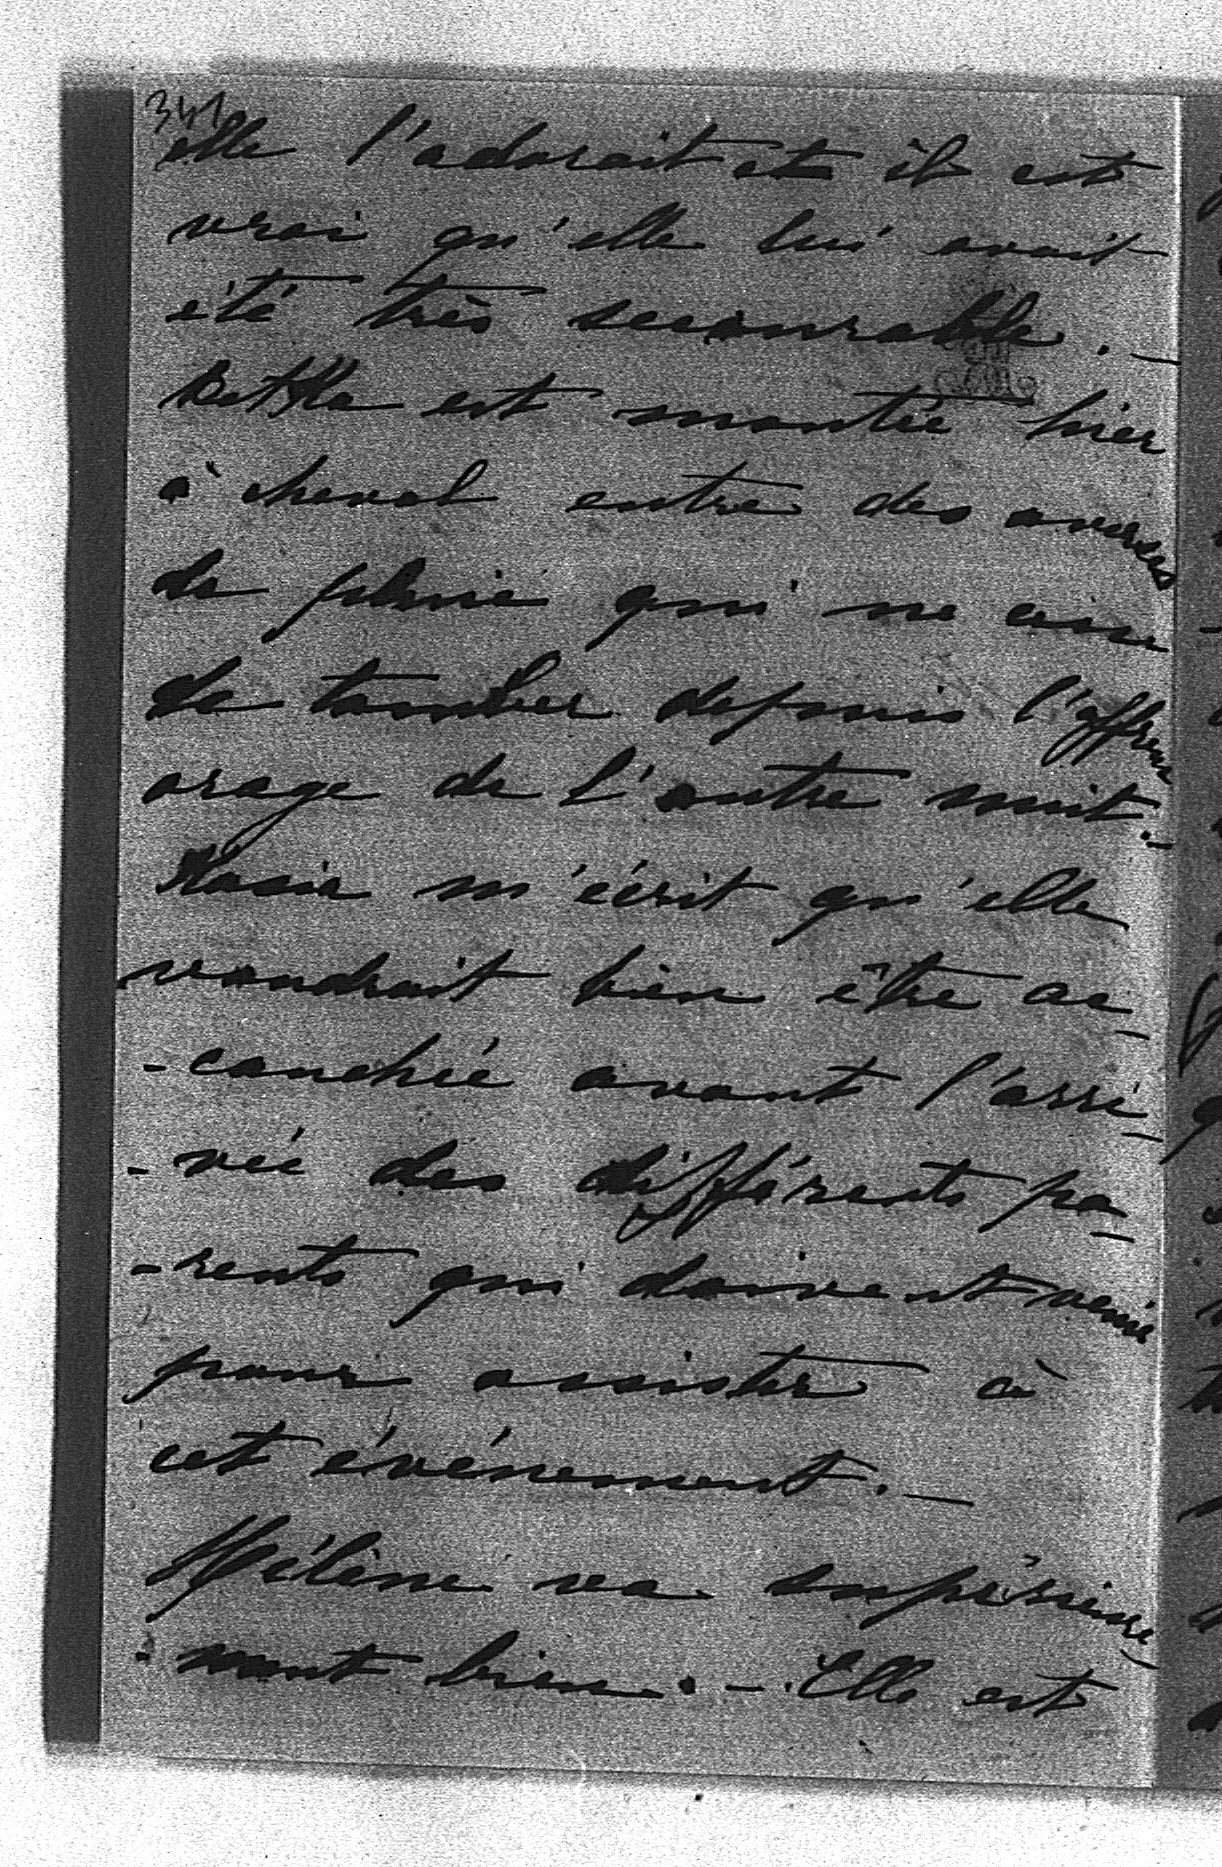 341
elle l'adorait et il est
vrai qu'elle lui avait
été très secourable. —
Bettka est montée hier
à cheval entre des averses
de pluie qui ne cesse
de tomber depuis l'affreux
orage de l'autre nuit. —
m'écrit qu'elle
voudrait bien être ac-
-couchée avant l'arri-
-vée des différents pa-
-rents qui doivent venir
pour assister à
cet événement. —
Hélène va supérieure-
-ment bien. — Elle est